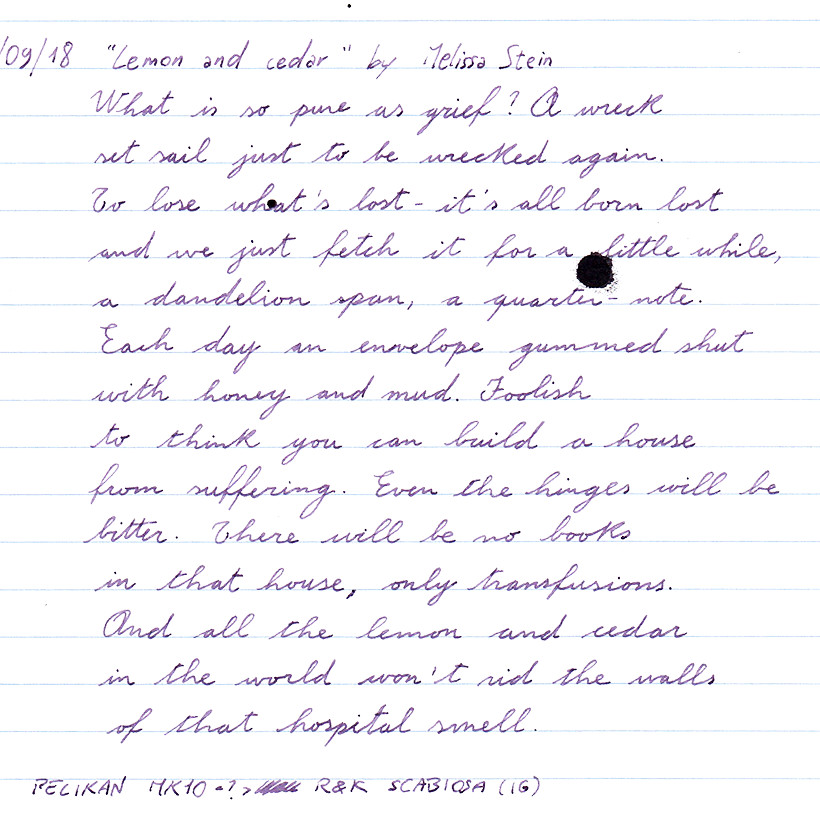 /09/18 "Lemon and cedar" by Melissa Stein
What is so pure as grief? A wreck
set sail just to be wrecked again.
To lose what's lost - it's all born lost
and we just fetch it for a little while,
a dandelion span, a quarter-note.
Each day an envelope gummed shut
with honey and mud. Foolish
to think you can build a house
from suffering. Even the hinges will be
bitter. There will be no books
in that house, only transfusions.
And all the lemon and cedar
in the world won't rid the walls
of that hospital smell.
PELIKAN MK10 -?> R&K SCABIOSA (IG)